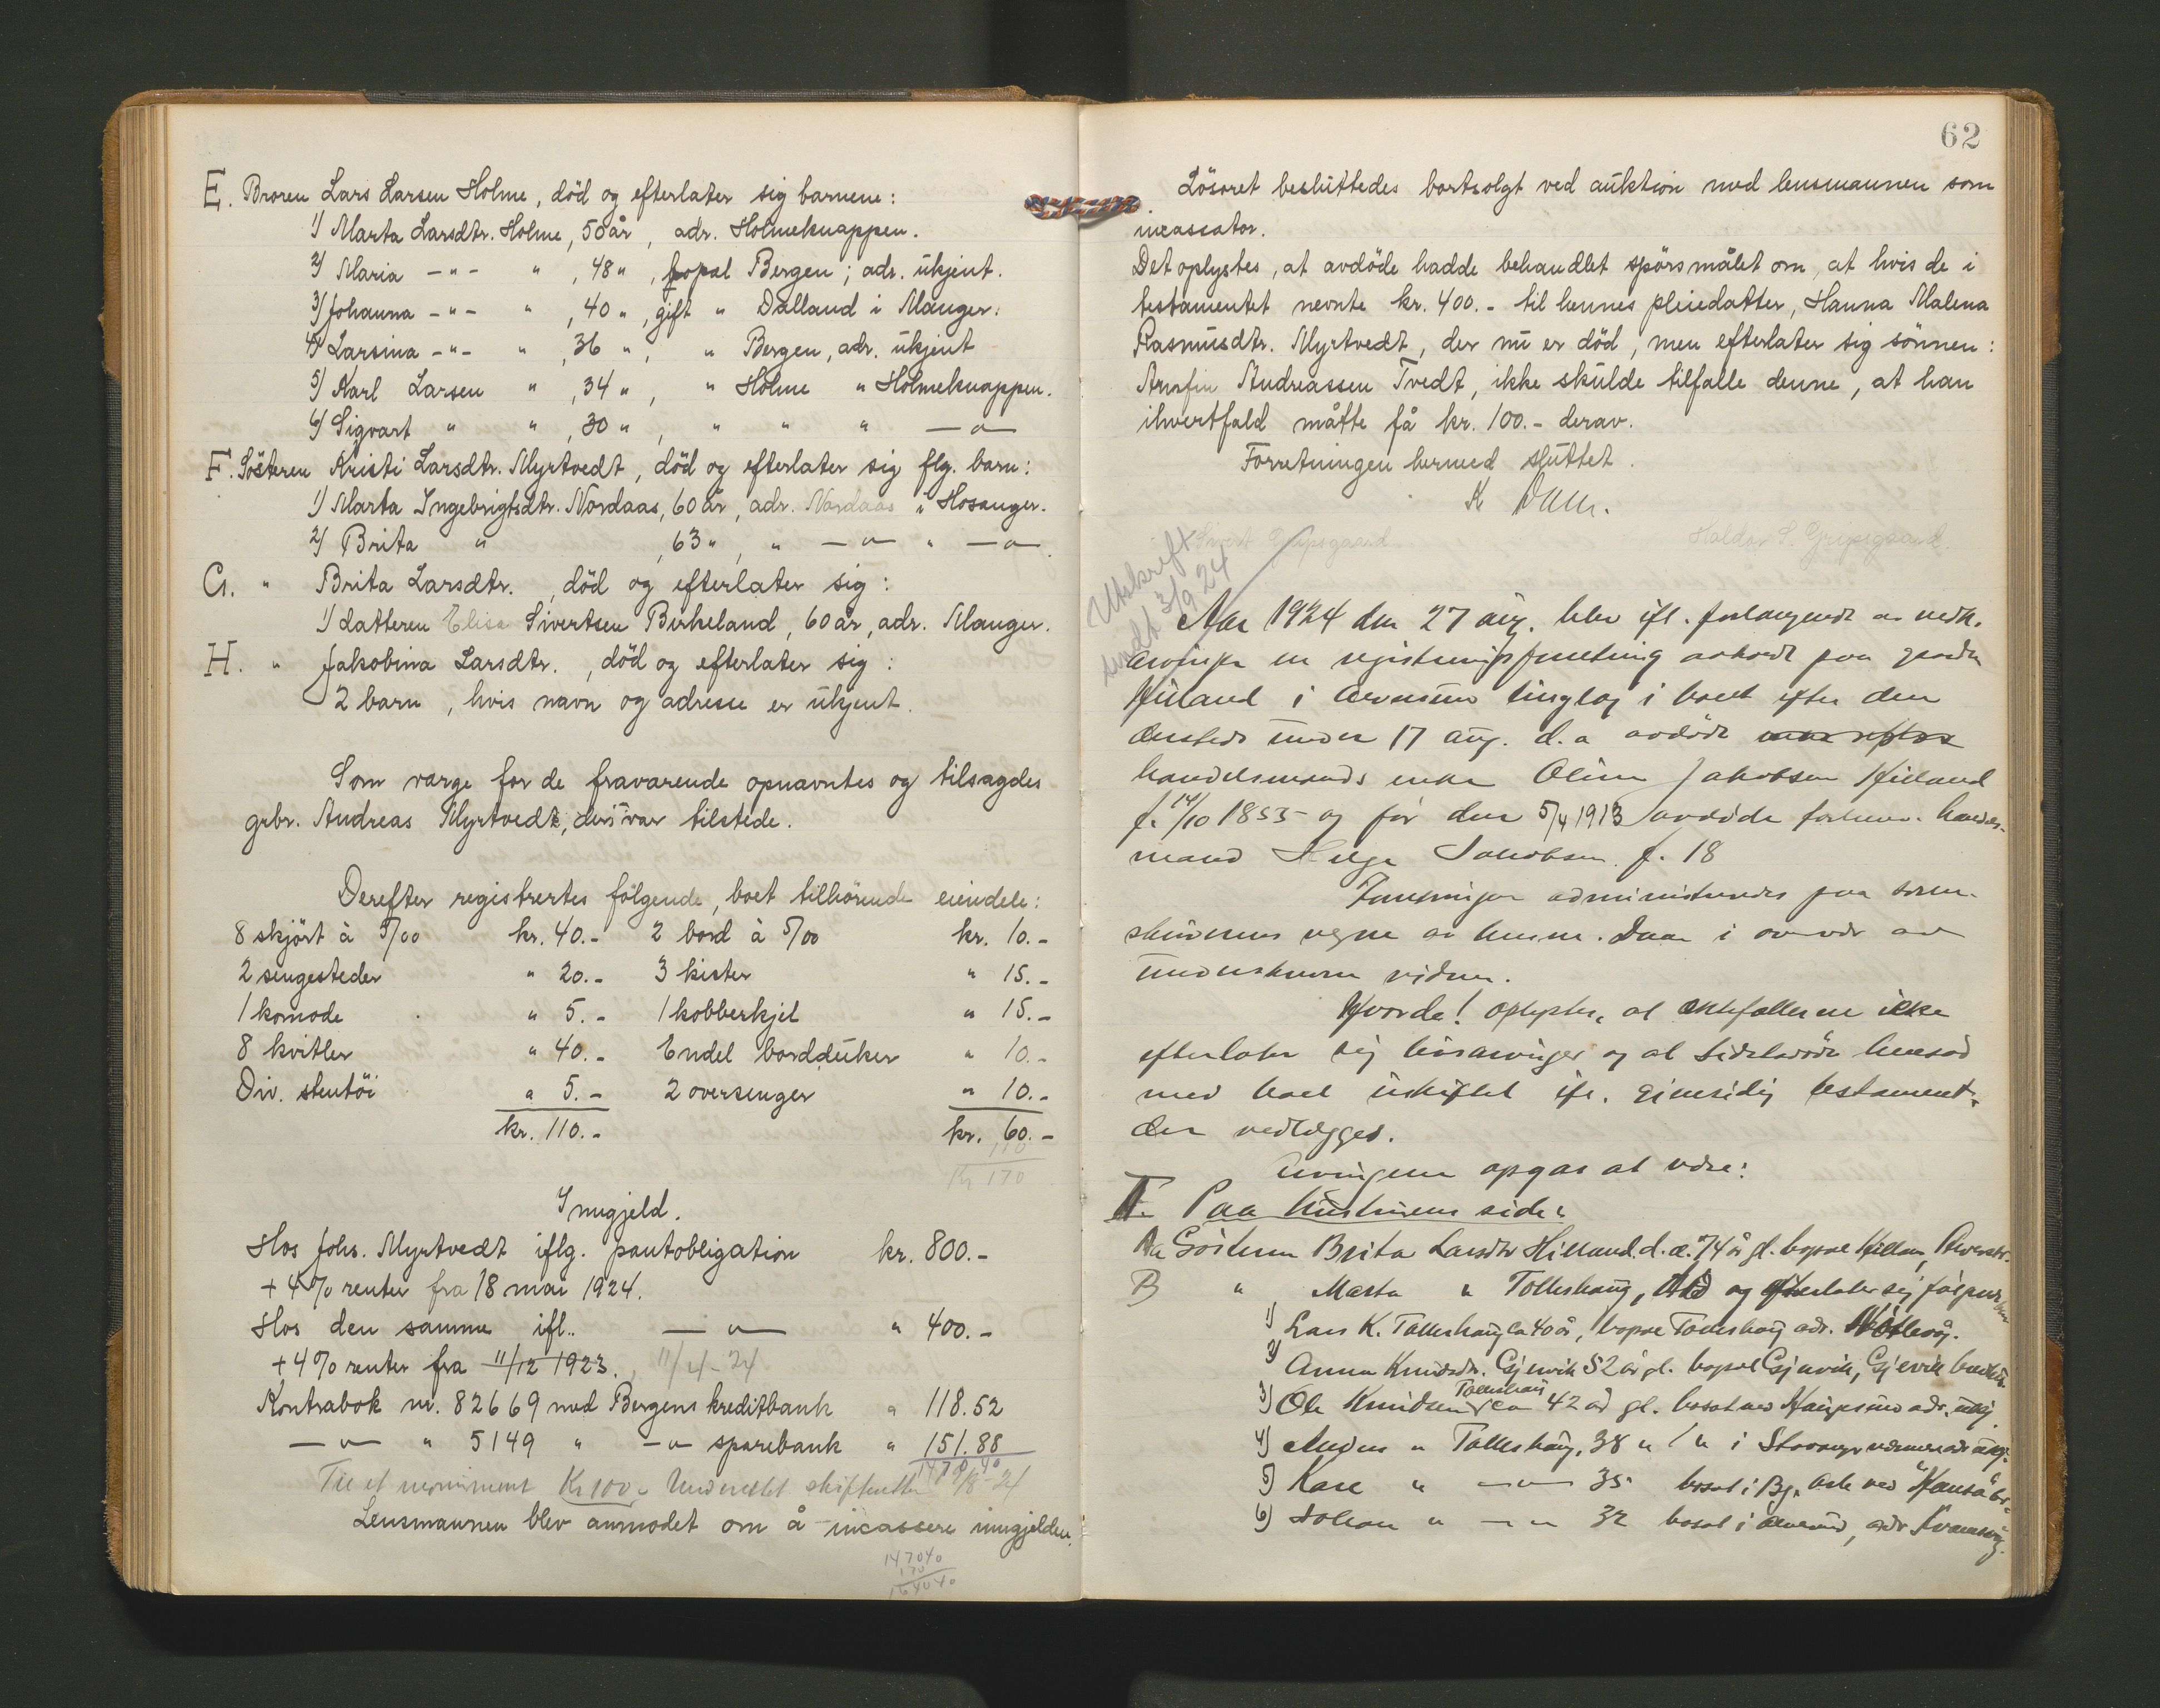 E. Broren Lars Larsen Holme, död og efterlater sig barnene:
1) Marta Larsdtr. Holme, 50 år, adr. Holmeknappen.
2) Maria -"- " , 48 " , bopæl Bergen; adr. ukjent.
3) Johanna -"- " , 40 " , gift " Dalland i Manger.
4) Larsina -"- " , 36 " , " Bergen, adr. ukjent
5) Karl Larsen " , 34 " , " Holme " Holmeknappen.
6) Sigvart " " , 30 " , " " " —"—
F. Sösteren Kristi Larsdtr. Myrtvedt, död og efterlater sig flg. barn:
1) Marta Ingebrigtsdtr. Nordaas, 60 år, adr. Nordaas i Hosanger.
2) Brita " , 63 " , " —"— " —"—.
G. " Brita Larsdtr. , död og efterlater sig:
1) datteren Elisa Sivertsen Birkeland, 60 år, adr. Manger.
H. " Jakobina Larsdtr. , död og efterlater sig:
2 barn, hvis navn og adresse er ukjent.
Som værge for de fraværende opnævntes og tilsagdes
grbr. Andreas Myrtvedt, der var tilstede.
Derefter registrertes fölgende, boet tilhörende eiendele:
8 skjört à 5/00 kr. 40.- 2 bord à 5/00 kr. 10.-
2 sengesteder " 20.- 3 kister " 15.-
1 komode " 5.- 1 kobberkjel " 15.-
8 kvitler " 40.- Endel bordduker " 10.-
Div. stentöi " 5.- 2 oversenger " 10.-
kr. 110.- kr. 60.-
110
Kr 170
Innգjeld.
Hos Johs. Myrtvedt iflg. pantobligation kr. 800.-
+ 4% renter fra 18 mai 1924.
Hos den samme ifl.. —"— " 400.-
+ 4% renter fra 11/12 1923. 11/4-24
Kontrabok nr. 82669 med Bergens kreditbank " 118.52
—"— " 5149 " -"- sparebank " 151.88
1470.40
Til et monument Kr 100.- Underrettet skifteretten 9/8-24
Lensmannen blev anmodet om å incassere inngjelden.
147040
170
164040
62
Lösöret besluttedes bortsolgt ved auktion med lensmannen som
incassator.
Det oplystes, at avdöde hadde behandlet spörsmålet om, at hvis de i
testamentet nevnte kr. 400.- til hennes pleiedatter, Hanna Malena
Rasmusdtr. Myrtvedt, der nu er död, men efterlater sig sönnen:
Arnfin Andreassen Tvedt, ikke skulde tilfalle denne, at han
ihvertfald måtte få kr. 100.- derav.
Forretningen hermed sluttet.
K Daae.
Sivert Gripsgaard Haldor S. Gripsgaard.
Utskrift
sendt 3/9 24
Aar 1924 den 27 aug. blev ifl. forlangende av vedk.
arvinger en registreringsforretning avholdt paa gaarden
Hilland i Alversund tinglag i boet efter den
dersteds under 17 aug. d.a avdöde
handelsmands enke Oline Jakobsen Hilland
f. 14/10 1855 og før den 5/4 1913 avdöde forhenv. handels-
mand Helge Jakobsen f. 18
Forretningen administreredes paa soren-
skriverens vegne av lensm. Daae i overvær av
underskrevne vidner.
Hvorda! oplystes, at ektefællerne ikke
efterlater sig livsarvinger og at sidstavdöde hensad
med boet uskiftet ifl. gjensidig testament,
der vedlægges.
Arvingerne opgaves at være:
I. Paa hustruens side:
A Sösteren Brita Larsdtr Hilland. d.æ. 74 år gl. bopæl Hilland, Alversund.
B " Marta " Tolleshaug, död og efterlater sig følgende barn
1) Lars K. Tolleshaug ca 40 år, bopæl Tolleshaug adr.
2) Anna Knudsdtr. Gjervik 52 år gl. bopæl Gjervik, Gjervik
3) Ole Knudsen Tolleshaug ca 42 år gl. bosat ved Haugesund adr. ukj.
4) Anders " Tolleshaug, 38 " " i Stavanger nærmere adr. ukj.
5) Kase " —"— 35 bosat i Bg. adr. ved "Hansa" br.
6) Johan " —"— 32 bosat i Alversund, adr